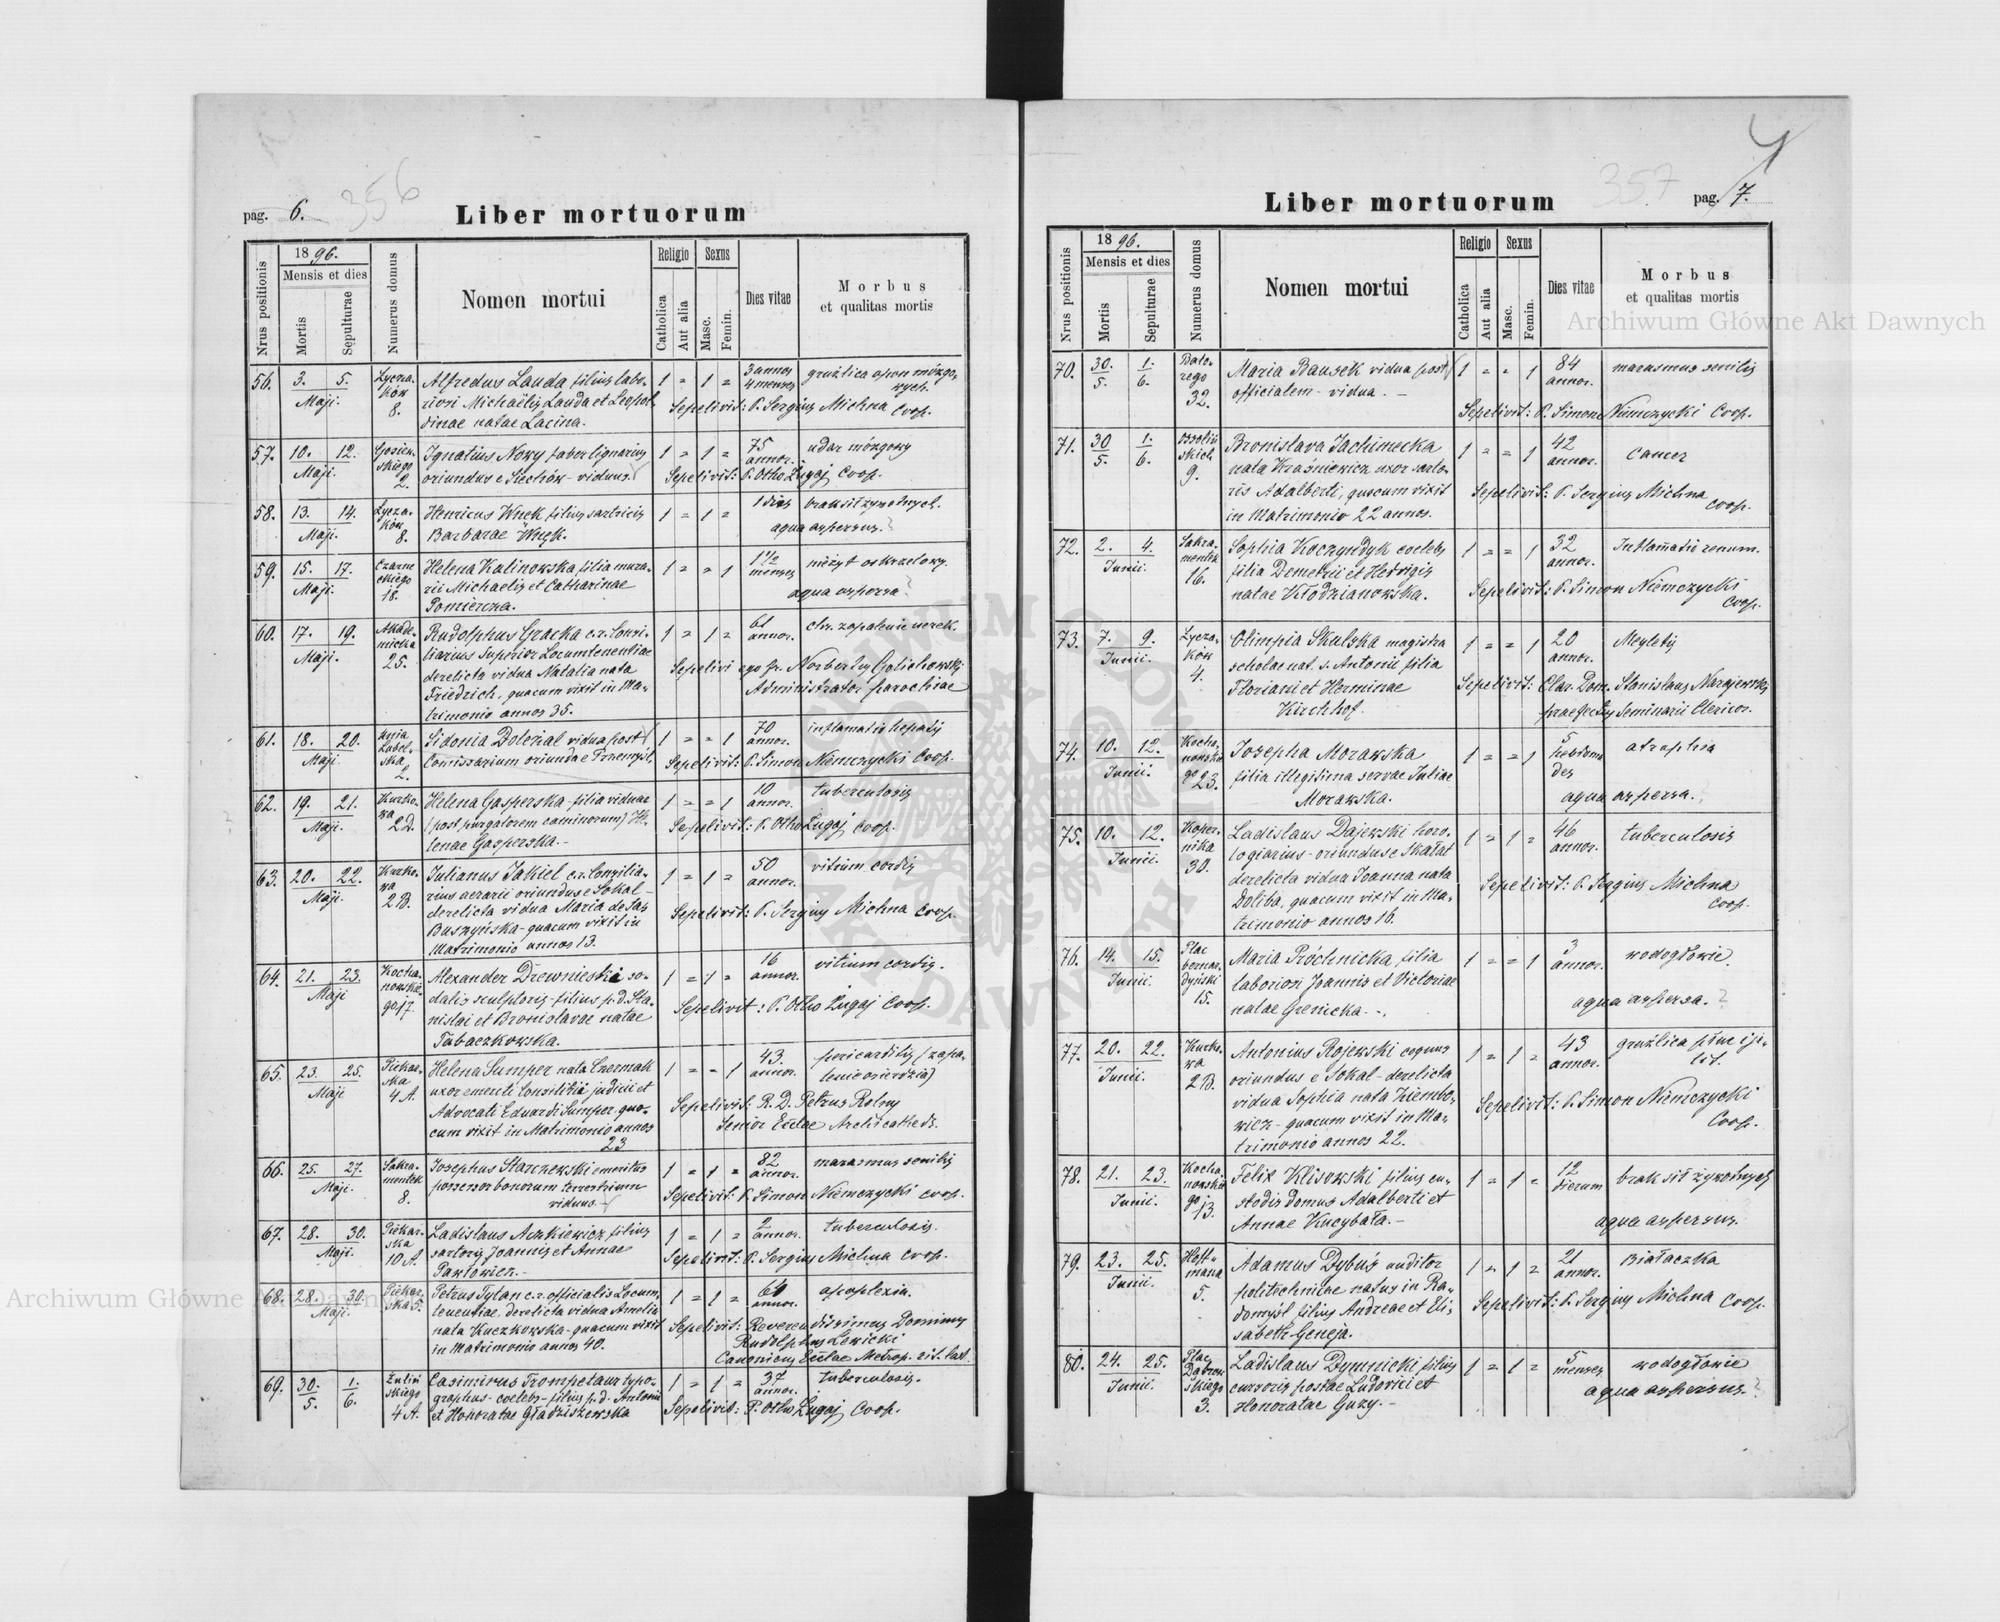 pag. 6. 356
Liber mortuorum
Nrus positionis
1896.
Mensis et dies
Mortis
Sepulturae
Numerus domus
Nomen mortui
Religio
Catholica
Aut alia
Sexus
Masc.
Femin.
Dies vitae
Morbus
et qualitas mortis
56. 3. 5. Maji. Łyczaków 8.
Alfredus Lauda filius labo-
riosi Michaëlis Lauda et Leopol-
dinae natae Lacina.
1 = 1 = 3 annos 4 menses gruźlica opon mózgo-
wych.
Sepelivit: P. Sergius Michna Coop.
57. 10. 12. Maji.
Ignatius Nowy faber lignarius
oriundus e Siechów - viduus.
1 = 1 = 75 annor. udar mózgowy
Sepelivit: P. Otho Żugaj Coop.
58. 13. 14. Maji. Łyczaków 8.
Henricus Wnęk filius sartricis
Barbarae Wnęk.
1 = 1 = 1 dies brak sił żywotnych.
aqua aspersus.
59. 15. 17. Maji. Czarneckiego 18.
Helena Kalinowska filia mura-
rii Michaelis et Catharinae
Pomiercza.
1 = = 1 1 1/2 menses nieżyt oskrzelowy
aqua aspersa
60. 17. 19. Maji. Akademicka 25.
Rudolphus Gracka c.r. Consi-
liarius Superior Locumtenentiae
derelicta vidua Natalia nata
Friedrich, quacum vixit in Ma-
trimonio annos 35.
1 = 1 = 61 annor. chr. zapalenie nerek.
Sepelivi ego fr. Norbertus Golichowski
Administrator parochiae
61. 18. 20. Maji 2.
Sidonia Doležal vidua post
Comissarium oriunda e Przemyśl,
1 = = 1 70 annor. inflamatio hepatis
Sepelivit: P. Simon Niemczycki Coop.
62. 19. 21. Maji. Kurkowa 2 D.
Helena Gasperska - filia viduae
(post purgatorem caminorum) He-
lenae Gasperska. -
1 = = 1 10 annor. tuberculosis
Sepelivit: P. Otho Żugaj Coop.
63. 20. 22. Maji. Kurkowa 2 B.
Julianus Jakiel c.r. Consilia-
rius aerarii oriundus e Sokal -
derelicta vidua Maria de Jas
Buszyńska - quacum vixit in
Matrimonio annos 13.
1 = 1 = 50 annor. vitium cordis
Sepelivit: P. Sergius Michna Coop.
64. 21. 23. Maji Kochanowskiego 17.
Alexander Drewnieski so-
dalis sculptoris - filius p. d. Sta-
nislai et Bronislavae natae
Tabaczkowska.
1 = 1 = 16 annor. vitium cordis.
Sepelivit: P. Otho Żugaj Coop.
65. 23. 25. Maji Piekarska 4 A.
Helena Sumper nata Czermak
uxor emeriti Consilii judicii et
Advocati Eduardi Sumper quo-
cum vixit in Matrimonio annos
23
1 = = 1 43. annor. pericarditis (zapa-
lenie osierdzia)
Sepelivit: R. D. Petrus Rolny
Senior Ecclae Archicathedr.
66. 25. 27. Maji. Sakramentek 8.
Josephus Starczewski emeritus
possessor bonorum terrestrium
viduus.
1 = 1 = 82 annor. marasmus senilis
Sepelivit: P. Simon Niemczycki coop.
67. 28. 30. Maji. Piekarska 10 A.
Ladislaus Aszkiewicz filius
sartoris Joannis et Annae
Pawłowicz. -
1 = 1 = 2 annor. tuberculosis.
Sepelivit: P. Sergius Michna Coop.
68. 28. 30. Maji. Piekarska 5.
Petrus Tylan c.r. officialis Locum-
tenentiae, derelicta vidua Amelia
nata Kuczkowska - quacum vixit
in Matrimonio annos 40.
1 = 1 = annor. apoplexia.
Sepelivit: Reverendissimus Dominus
Rudolphus Lewicki
Canonicus Ecclae Metrop. rit. lat.
69. 30. 5. 1. 6. 4 A.
Casimirus Trompetaur typo-
graphus - coelebs - filius p. d. Antonii
et Honoratae Gładziszewska
1 = 1 = 37 annor. tuberculosis.
Sepelivit: P. Otho Żugaj Coop.
357 pag. 7.
Liber mortuorum
Nrus positionis
1896.
Mensis et dies
Mortis
Sepulturae
Numerus domus
Nomen mortui
Religio
Catholica
Aut alia
Sexus
Masc.
Femin.
Dies vitae
Morbus
et qualitas mortis
70. 30. 5. 1. 6. Batorego 32.
Maria Bausek vidua post
officialem - vidua. -
1 = = 1 84 annor. marasmus senilis
Sepelivit: P. Simon Niemczycki Coop.
71. 30 5. 1. 6. Ossolińskich 9.
Bronislava Jachimecka
nata Kraśniewicz uxor sarto-
ris Adalberti, quocum vixit
in Matrimonio 22 annos.
1 = = 1 42 annor. Cancer
Sepelivit: P. Sergius Michna
Coop.
72. 2. 4. Junii. Sakramentek 16.
Sophia Koczyndyk coelebs
filia Demetrii et Hedvigis
natae Kłodzianowska.
1 = = 1 32 annor. Inflamatii renum.
Sepelivit: P. Simon Niemczycki
Coop.
73. 7. 9. Junii. Łyczaków 4.
Olimpia Skulska magistra
scholae nat. s. Antonii filia
Floriani et Herminae
Kirchhof.
1 = = 1 20 annor.
Sepelivit: Clar. Dom. Stanislaus Narajewski
praefectus Seminarii Clericor.
74. 10. 12. Junii. Kochanowskiego 23.
Josepha Morawska
filia illegitima servae Juliae
Morawska.
1 = = 1 5 hebdomades atrophia
aqua aspersa.
75. 10. 12. Junii. Kopernika 30.
Ladislaus Dajewski horo-
logiarius - oriundus e Skałat
derelicta vidua Joanna nata
Doliba, quacum vixit in Ma-
trimonio annos 16.
1 = 1 = 46 annor. tuberculosis
Sepelivit: P. Sergius Michna
Coop.
76. 14. 15. Junii. Plac bernardyński 15.
Maria Próchnicka filia
laboriosi Joannis et Victoriae
natae Grenicka. -
1 = = 1 3 annor. wodogłowie.
aqua aspersa.
77. 20. 22. Junii. Kurkowa 2 B.
Antonius Rojewski coquus
oriundus e Sokal - derelicta
vidua Sophia nata Ziembo-
wicz - quacum vixit in Ma-
trimonio annos 22.
1 = 1 = 43 annor. gruźlica płuc i je-
lit.
Sepelivit: P. Simon Niemczycki
Coop.
78. 21. 23. Junii. Kochanowskiego 13.
Felix Klisowski filius cu-
stodis domus Adalberti et
Annae Kucybała. -
1 = 1 = 12 dierum brak sił żywotnych
aqua aspersus.
79. 23. 25. Junii. Hoffmana 5.
Adamus Dybuś auditor
politechnicae natus in Ra-
domyśl filius Andreae et Eli-
sabeth Geneja.
1 = 1 = 21 annor. Białaczka
Sepelivit: P. Sergius Michna Coop.
80. 24. 25. Junii. Plac Dąbrowskiego 3.
Ladislaus Dymnicki filius
cursoris postae Ludovici et
Honoratae Guzy. -
1 = 1 = 5 menses wodogłowie
aqua aspersus.
Archiwum Główne Akt Dawnych
Archiwum Główne Akt Dawnych